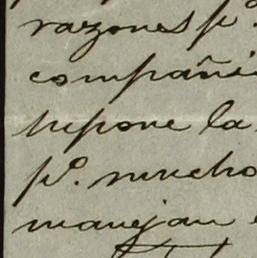 razones pª.
compañi
supone la
pº. mucho
manejan